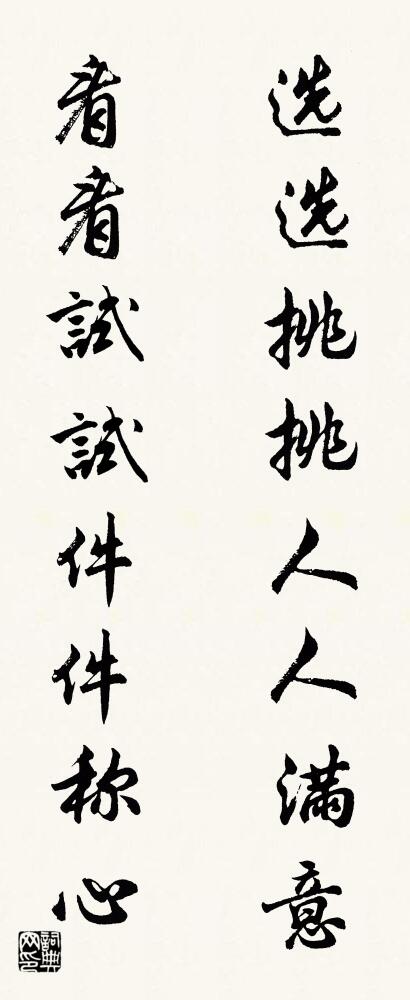 选选挑挑人人满意
看看試試件件称心
詞典网印